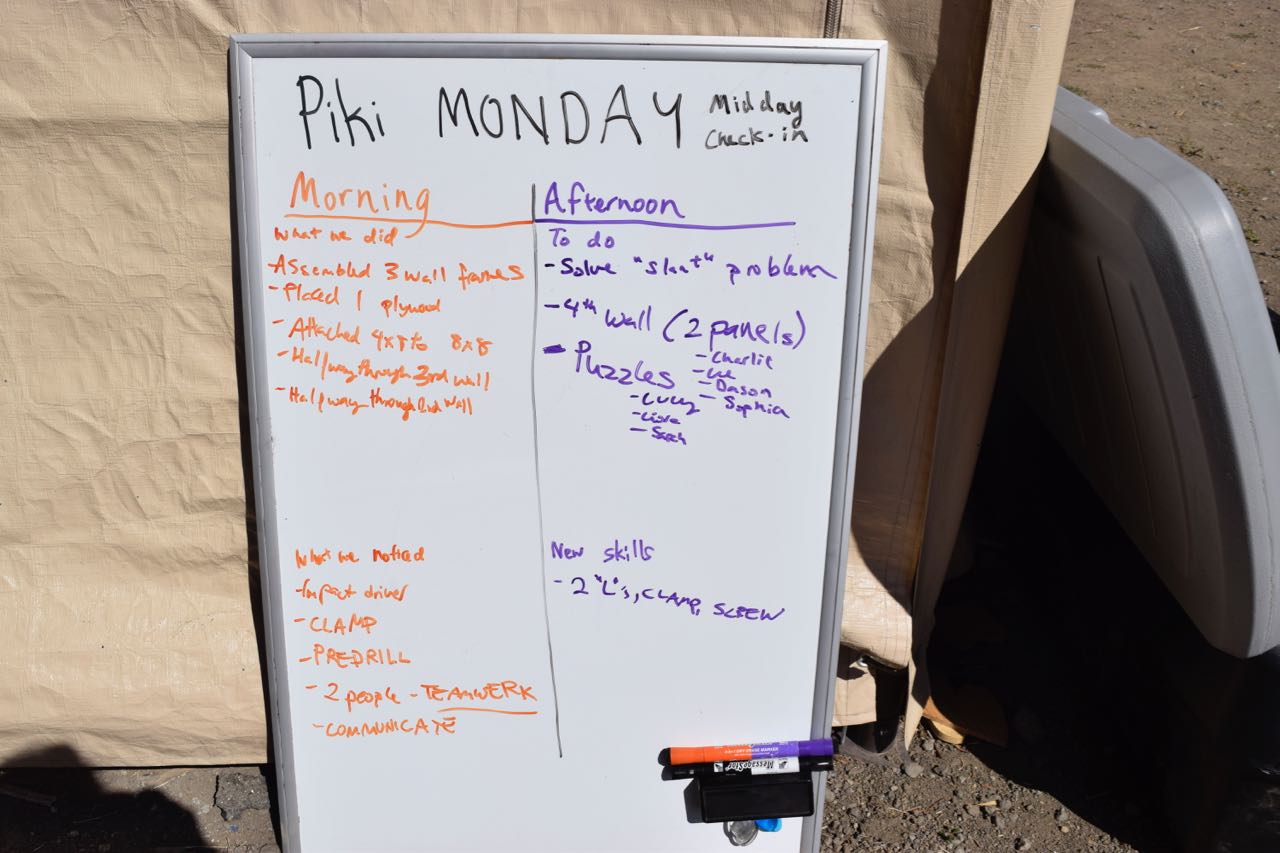 Piki MONDAY Midday Check-in
Morning
What we did
-Assembled 3 wall frames
-Placed 1 plywood
-Attached 4x8 to 8x8
-Halfway through 3rd wall
-Halfway through 2nd wall
What we noticed
-Impact driver
-CLAMP
-PREDRILL
-2 people - TEAMWERK
-COMMUNICATE
Afternoon
To do
-Solve "slant" problem
-4th wall (2 panels)
-Puzzles
-Charlie
-Dason
-Sophia
-Lucy
-Sarah
New skills
-2 "L"s, CLAMP, SCREW
MessageStar